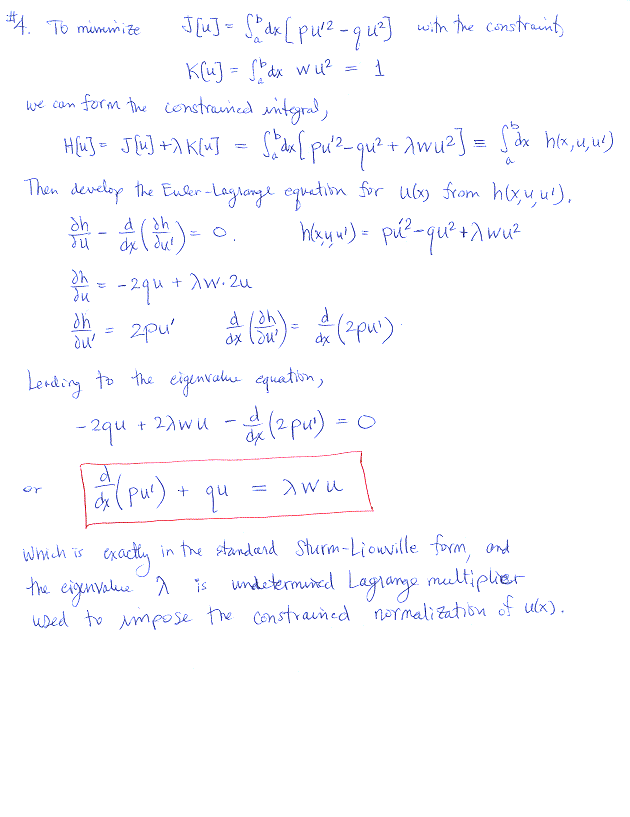 #4. To minimize J[u] = ∫_a^b dx [pu'² - qu²] with the constraint,
K[u] = ∫_a^b dx wu² = 1
we can form the constrained integral,
H[u] = J[u] + λK[u] = ∫_a^b dx [pu'² - qu² + λwu²] ≡ ∫_a^b dx h(x,u,u')
Then develop the Euler-Lagrange equation for u(x) from h(x,u,u').
∂h/∂u - d/dx (∂h/∂u') = 0. h(x,u,u') = pu'² - qu² + λwu²
∂h/∂u = -2qu + λw·2u
∂h/∂u' = 2pu' d/dx (∂h/∂u') = d/dx (2pu').
Leading to the eigenvalue equation,
-2qu + 2λwu - d/dx (2pu') = 0
or d/dx (pu') + qu = λwu
which is exactly in the standard Sturm-Liouville form, and
the eigenvalue λ is undetermined Lagrange multiplier
used to impose the constrained normalization of u(x).